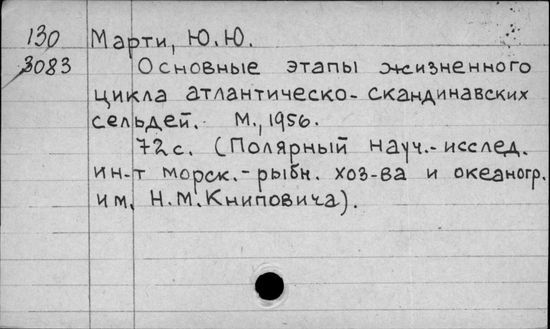 130 Марти, Ю.Ю.
3083 Основные этапы жизненного
цикла атлантическо-скандинавских
сельдей. М., 1956.
72 с. (Полярный науч.-исслед.
ин-т морск.-рыбн. хоз-ва и океаногр.
им. Н.М.Книповича).